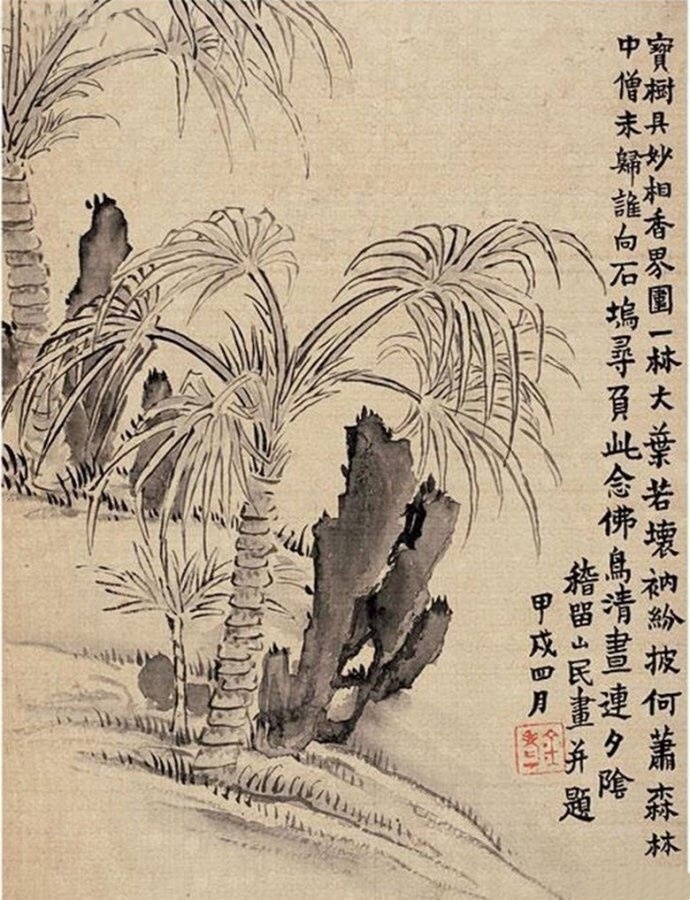 寶樹具妙相香界圍一林大葉若壞衲紛披何蕭森林
中僧未歸誰向石塢尋頁此念佛鳥清晝連夕陰
稽留山民畫并題
甲戌四月